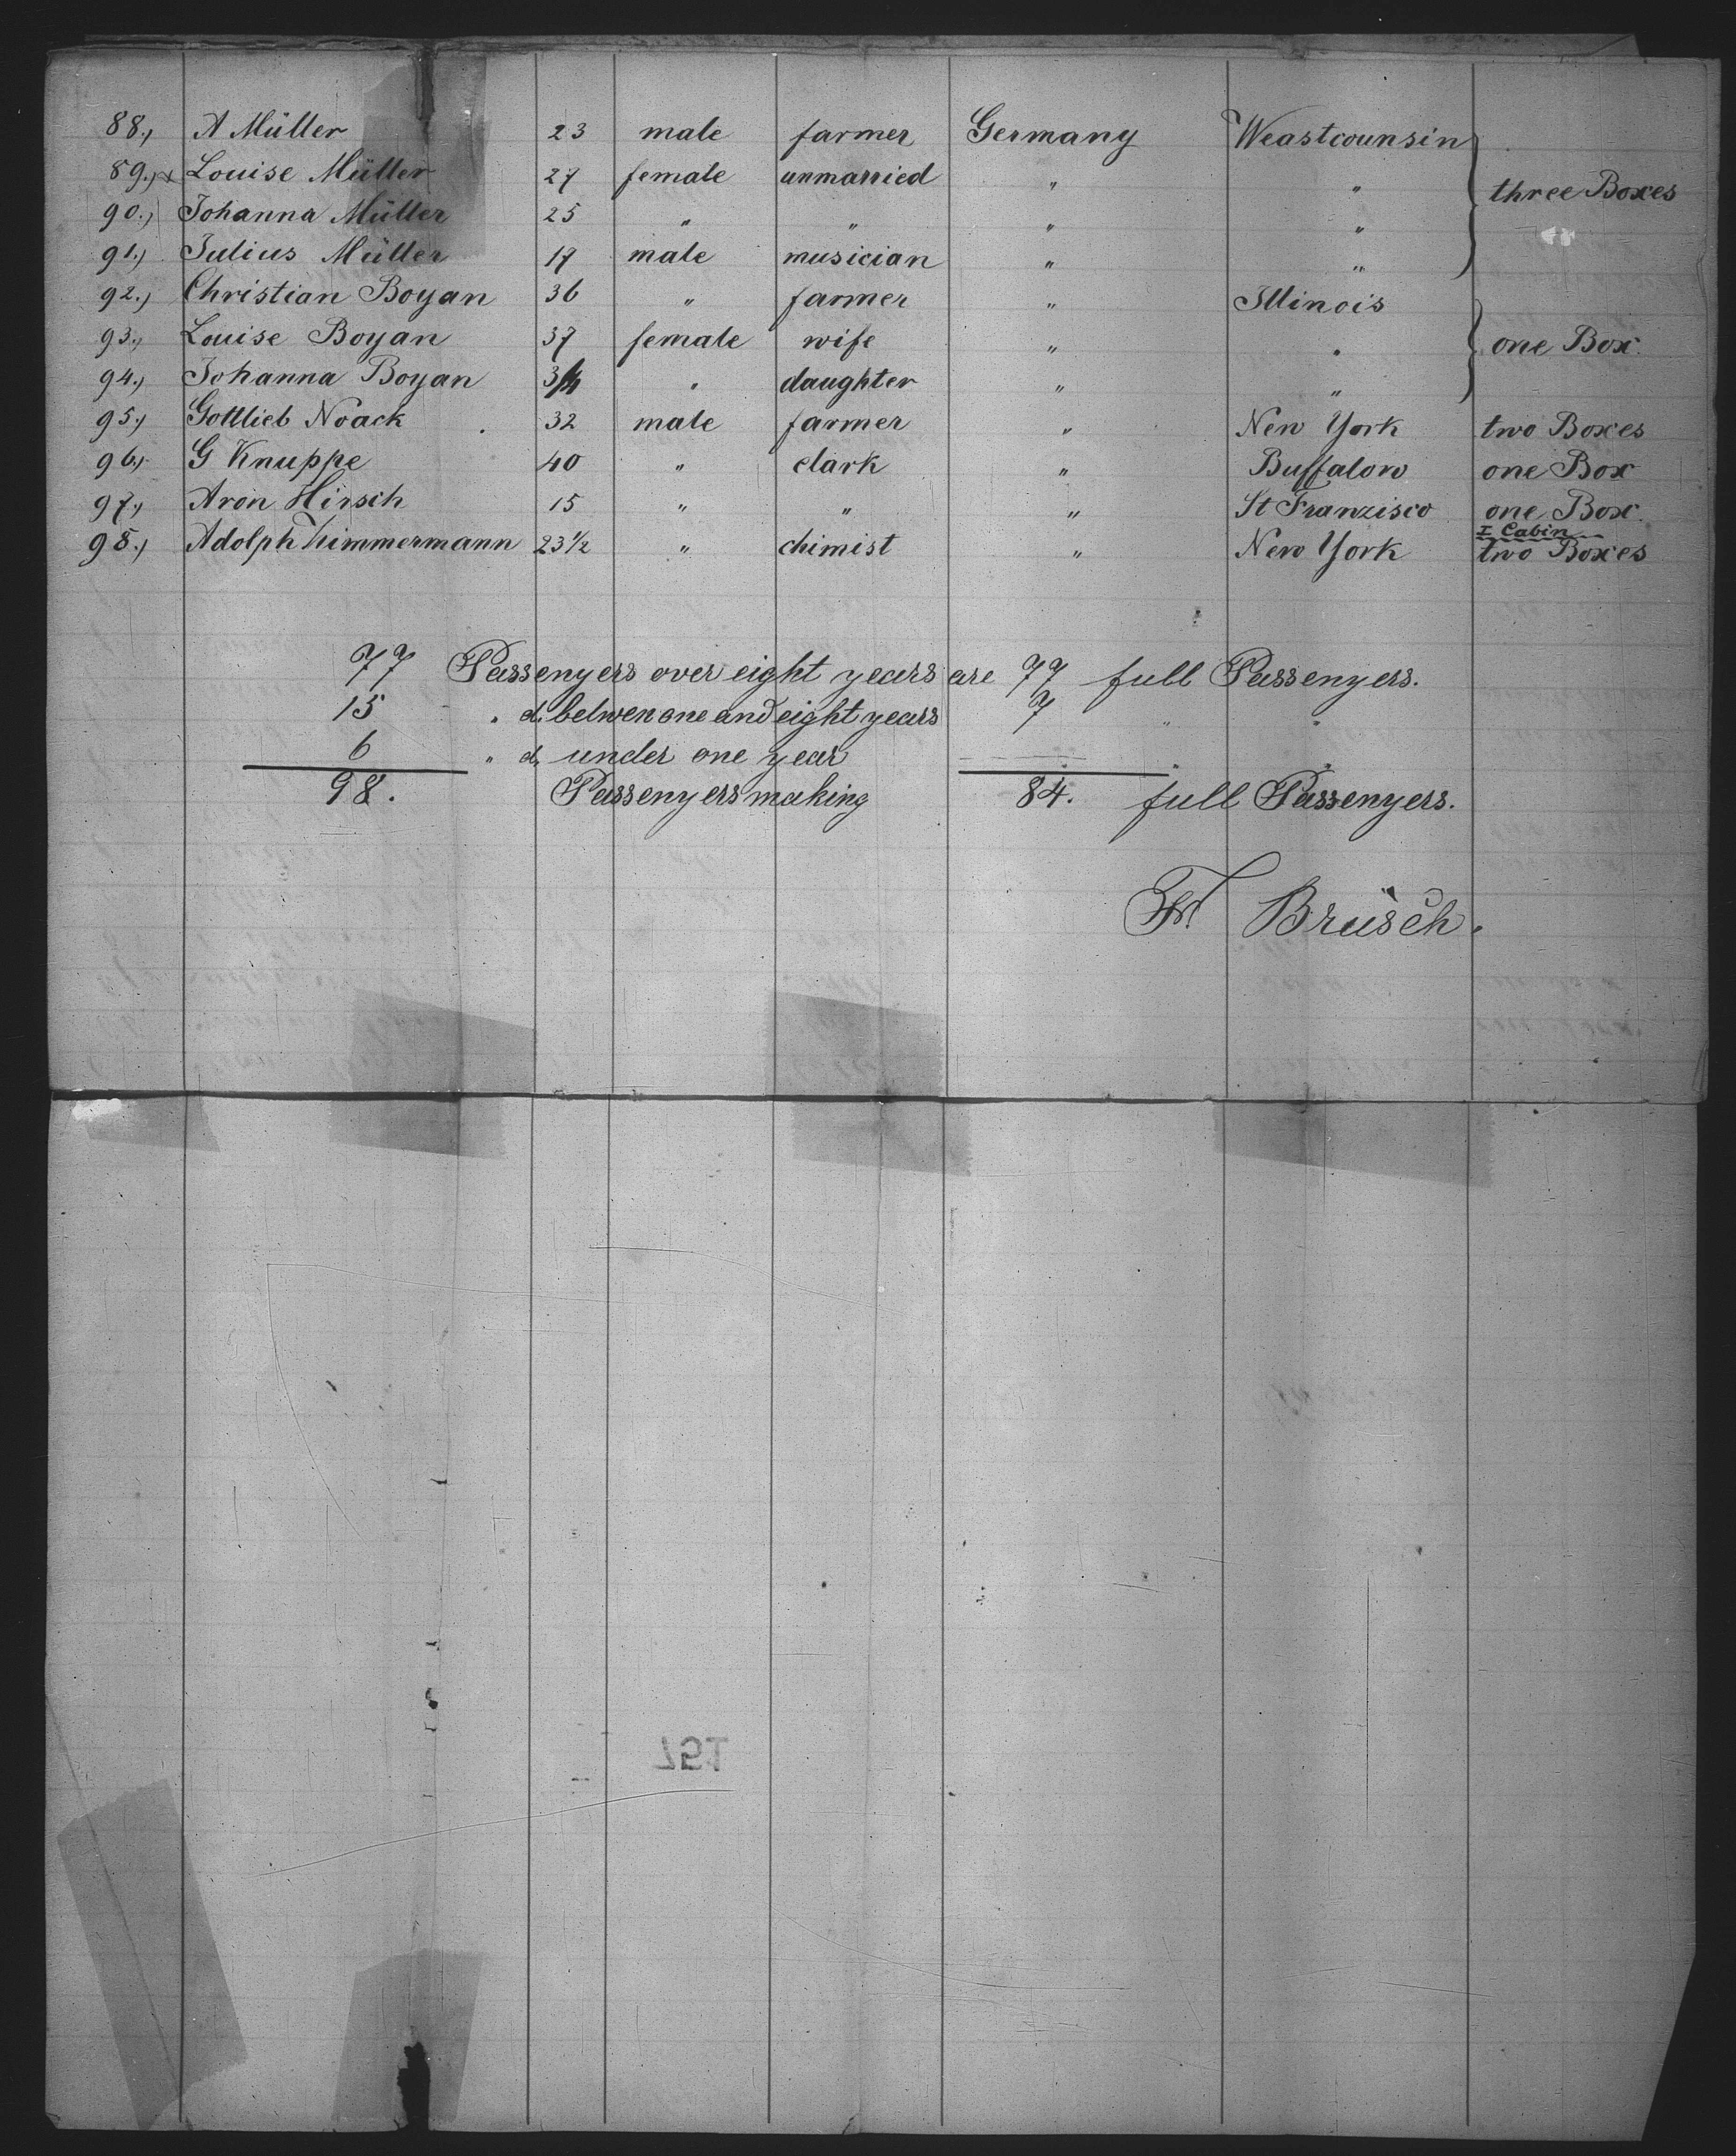 88.) A Müller 23 male farmer Germany Weastcounsin
89.) x Louise Müller 27 female unmarried " " three Boxes
90.) Johanna Müller 25 " " " "
91.) Julius Müller 17 male musician " "
92.) Christian Boyan 36 " farmer " Illinois
93.) Louise Boyan 37 female wife " " one Box.
94.) Johanna Boyan 3/4 " daughter " "
95.) Gottlieb Noack 32 male farmer " New York two Boxes
96.) G Knuppe 40 " clark " Buffalow one Box
97.) Aron Hirsch 15 " " " St Franzisco one Box.
I Cabin
98.) Adolph Thimmermann 23 1/2 " chimist " New York two Boxes
77 Passenyers over eight years are 77 full Passenyers.
15 " d. betwen one and eight years 7 " "
6 " d. under one year " "
98. Passenyers making 84. full Passenyers.
Fr. Brüsch.
157